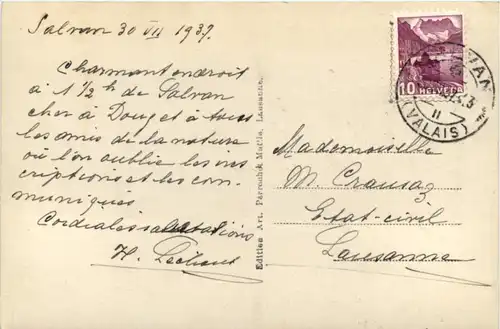 Salvan 30 VII 1937.
Charmant endroit
à 1 1/2 h de Salvan
cher à Doug et à tous
les amis de la nature
où l'on oublie les ins
criptions et les com-
muniqués
Cordiales salutations
H.
Edition Art. Perrochet Matile, Lausanne.
10 HELVETIA
(VALAIS)
II
Mademoiselle
M. Crausaz
Etat-civil
Lausanne